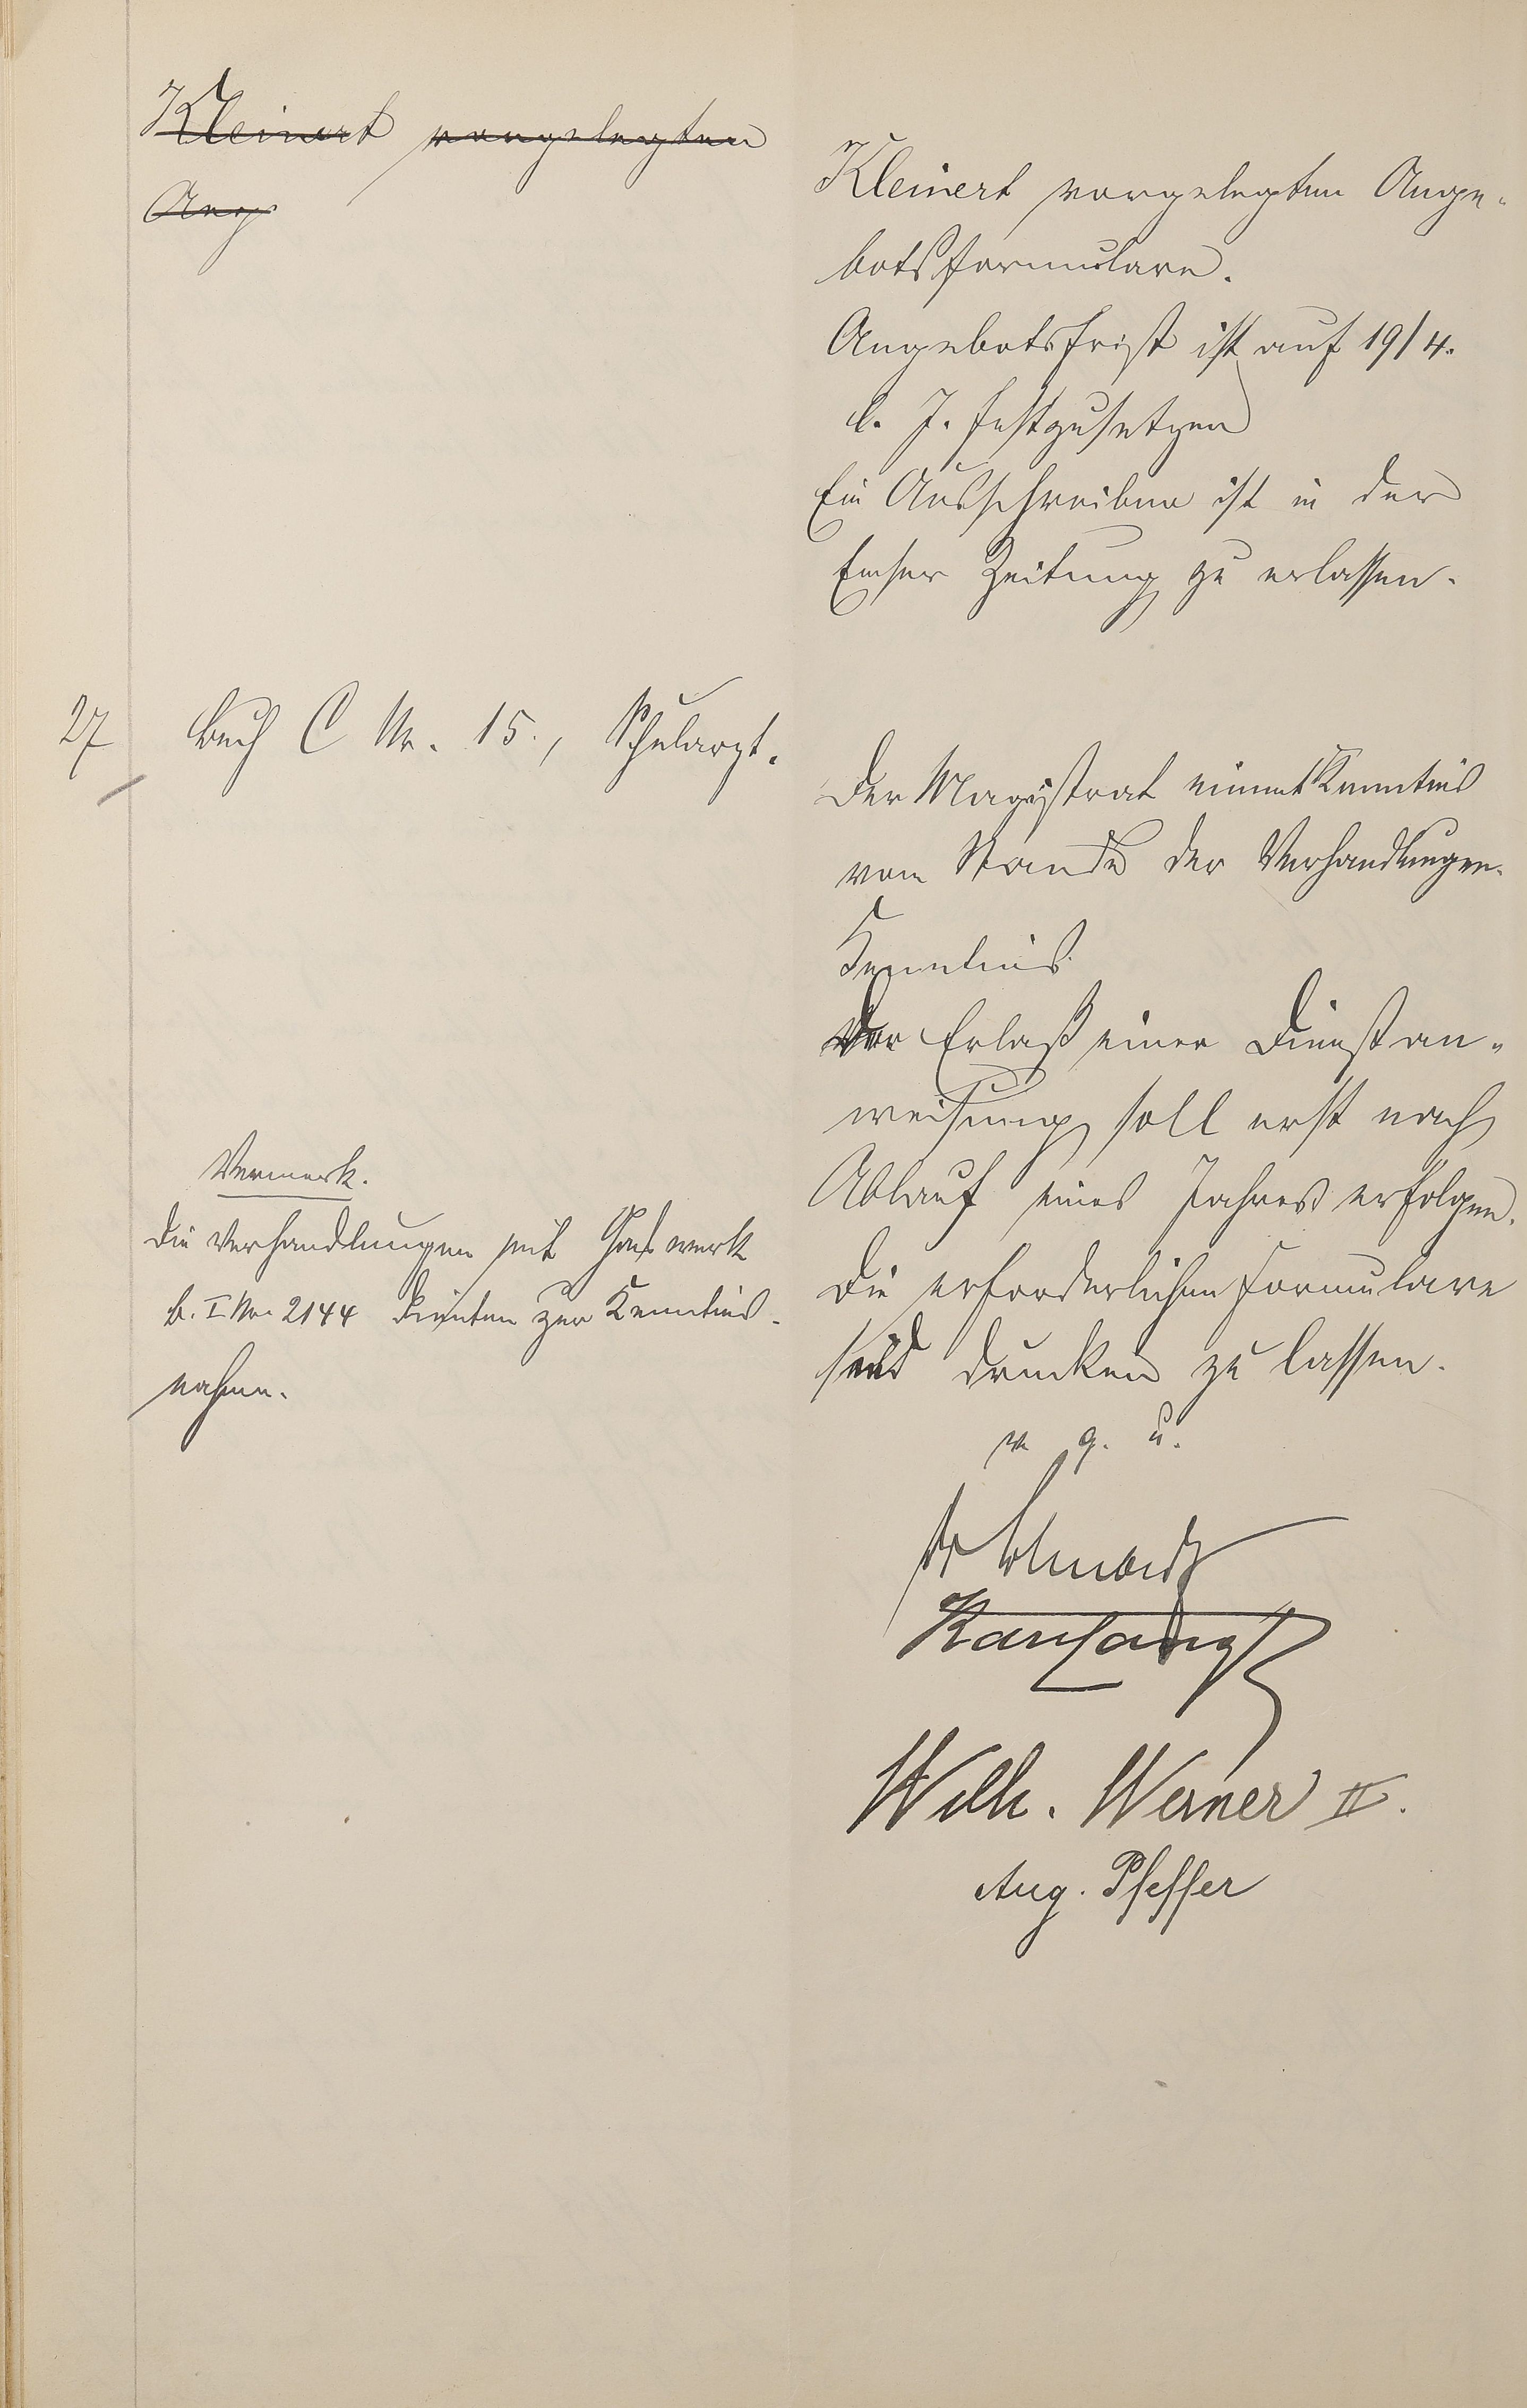 Kleinert vorgelegten
Ang
Kleinert vorgelegten Ange-
botsformulare.
Angebotsfrist ist auf 19/4.
l. J. festzusetzen
Ein Ausschreiben ist in der
Emser Zeitung zu erlassen.
27 Buch C Nr. 15., Schularzt.
Der Magistrat nimmt Kenntnis
vom Stande der Verhandlungen.
Kenntnis.
Der Erlaß einer Dienstan-
weisung soll erst nach
Ablauf eines Jahres erfolgen.
Die erforderlichen Formulare
sind drucken zu lassen.
Vermerk.
Die Verhandlungen mit Gaswerk
b. I Nr. 2144 dienten zur Kenntnis-
nahme.
v. g. u.
Wilh. Werner II.
Aug. Pfeffer